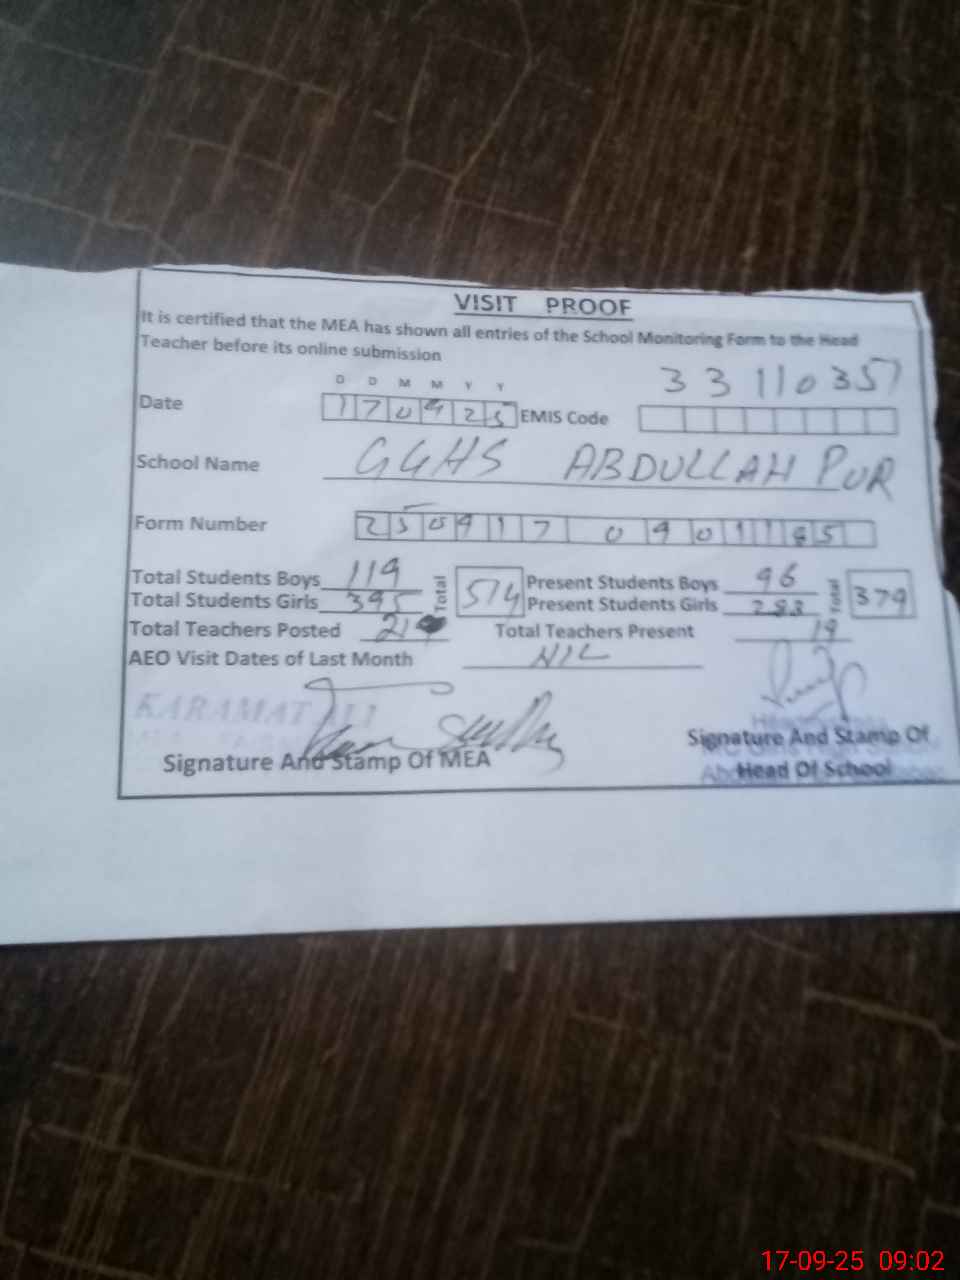 VISIT PROOF
It is certified that the MEA has shown all entries of the School Monitoring Form to the Head
Teacher before its online submission
D D M M Y Y
Date 170925 EMIS Code 33110357
School Name GGHS ABDULLAH PUR
Form Number 250917 0901165
Total Students Boys 119 Total 514 Present Students Boys 96 Total 379
Total Students Girls 395 Present Students Girls 283
Total Teachers Posted 21 Total Teachers Present 19
AEO Visit Dates of Last Month NIL
KARAMAT ALI
Signature And Stamp Of MEA
Signature And Stamp Of
Head Of School
17-09-25 09:02